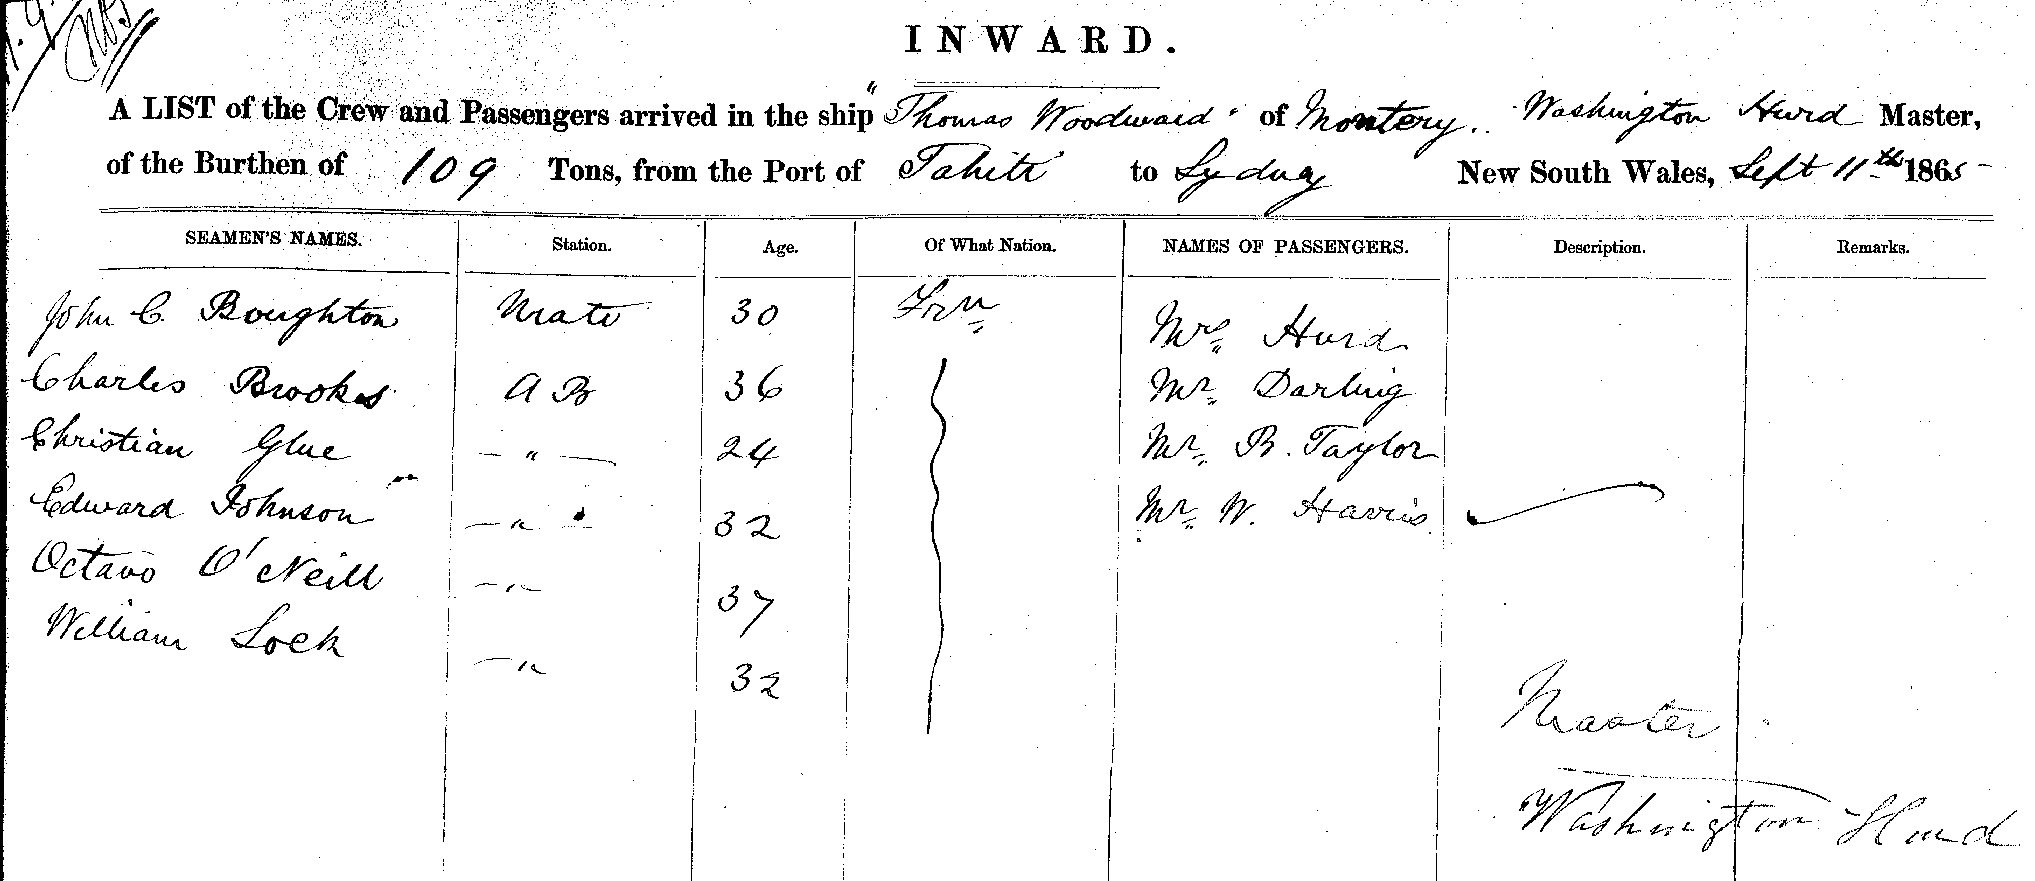 INWARD.
A LIST of the Crew and Passengers arrived in the ship "Thomas Woodward" of Montery. Washington Hurd Master,
of the Burthen of 109 Tons, from the Port of Tahiti to Sydney New South Wales, Sept 11th 1865
SEAMEN'S NAMES. Station. Age. Of What Nation. NAMES OF PASSENGERS. Description. Remarks.
John C. Boughton Mate 30 Mrs Hurd
Charles Brookes A B 36 Mr Darling
Christian Glue — " — 24 Mr B. Taylor
Edward Johnson — " — 32 Mr W. Harris
Octavo O'Neill — " 37
William Lock — " 32
Master
Washington Hurd